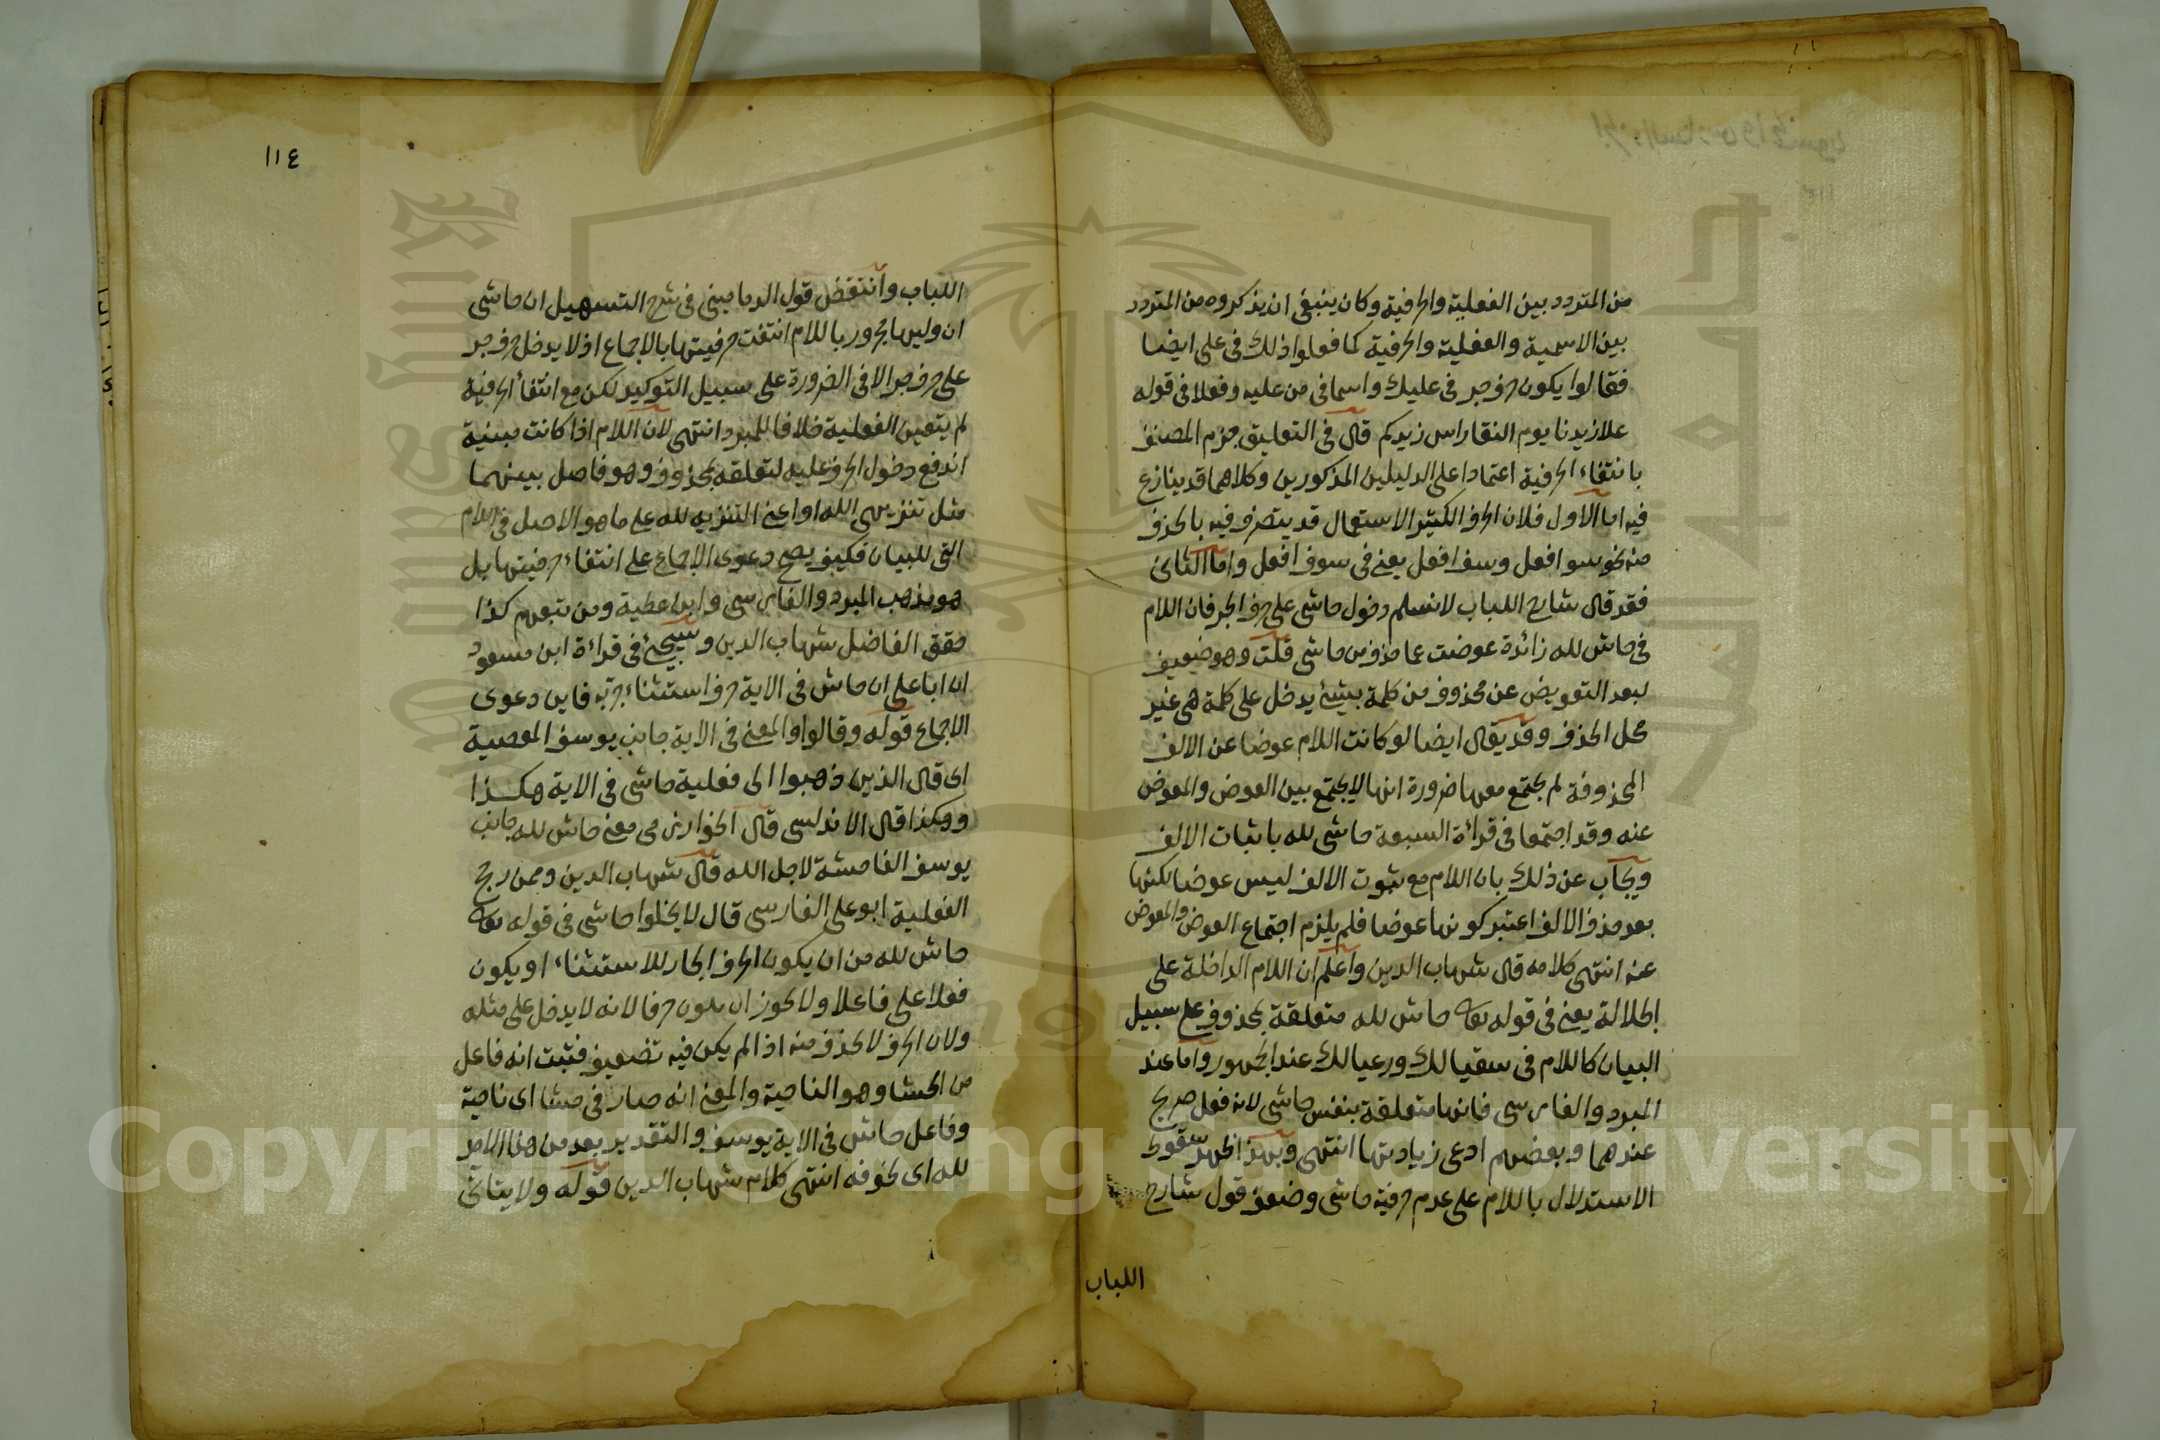 من المتردد بين الفعلية والحرفية وكان ينبغي ان يذكروه من المتردد
بين الاسمية والفعلية والحرفية كما فعلوا ذلك في على ايضا
فقالوا يكون حرف جر في عليك واسما في من عليه وفعلا في قوله
علا زيدنا يوم النقا راس زيدكم قال في التعليق جزم المصنف
بانتفاء الحرفية اعتمادا على الدليلين المذكورين وكلاهما قد ينازع
فيه اما الاول فلان الحرف الكثير الاستعمال قد يتصرف فيه بالحذف
منه نحو سو افعل وسف افعل يعني في سوف افعل واما الثاني
فقد قال شارح اللباب لا نسلم دخول حاشى على حرف الجر فان اللام
في حاش لله زائدة عوضت عما حذف من حاشى قلت وهو ضعيف
لبعد التعويض عن محذوف من كلمة بشيئ يدخل على كلمة هي غير
محل الحذف وقد يقال ايضا لو كانت اللام عوضا عن الالف
المحذوفة لم يجتمع معها ضرورة انها لا يجتمع بين العوض والمعوض
عنه وقد اجتمعا في قرائة السبعة حاشى لله باثبات الالف
ويجاب عن ذلك بان اللام مع ثبوت الالف ليس عوضا لكنها
بعد حذف الالف اعتبر كونها عوضا فلم يلزم اجتماع العوض والمعوض
عنه انتهى كلامه قال شهاب الدين واعلم ان اللام الداخلة على
الجلالة يعني في قوله تعالى حاش لله متعلقة بمحذوف على سبيل
البيان كاللام في سقيا لك ورعيا لك عند الجمهور واما عند
المبرد والفارسي فانها متعلقة بنفس حاشى لانه فعل صريح
عندهما وبعضهم ادعى زيادتها انتهى وبهذا ظهر سقوط
الاستدلال باللام على عدم حرفية حاشى وضعف قول شارح
اللباب
١١٤
اللباب وانتقض قول الدماميني في شرح التسهيل ان حاشى
ان وليها مجرور باللام انتفت حرفيتها بالاجماع اذ لا يدخل حرف جر
على حرف جر الا في الضرورة على سبيل التوكيد لكن مع انتفاء الحرفية
لم يتعين الفعلية خلافا للمبرد انتهى لان اللام اذا كانت مبينة
اندفع دخول الحرف عليه لتعلقه بمحذوف وهو فاصل بينهما
مثل تنزيهي الله او اعني التنزيه لله على ما هو الاصل في اللام
التي للبيان فكيف يصح دعوى الاجماع على انتفاء حرفيتها بل
هو مذهب المبرد والفارسي وابن عطية ومن تبعهم كذا
حقق الفاضل شهاب الدين وسيجئ في قراءة ابن مسعود
ان ابا على ان حاش في الاية حرف استثناء جر به فاين دعوى
الاجماع قوله وقالوا والمعنى في الاية جانب يوسف المعصية
اى قال الذين ذهبوا الى فعلية حاشى في الاية هكذا
وهكذا قال الاندلسي قال الخوارزمي معنى حاش لله جانب
يوسف الفاحشة لاجل الله قال شهاب الدين وممن رجح
الفعلية ابو على الفارسي قال لا يخلوا حاشى في قوله تعالى
حاش لله من ان يكون الحرف الجار للاستثناء او يكون
فعلا على فاعلا ولا يجوز ان يكون حرفا لانه لا يدخل على مثله
ولان الحرف لا يحذف منه اذا لم يكن فيه تضعيف فثبت انه فاعل
من الحشا وهو الناحية والمعنى انه صار في حشا اى ناحية
وفاعل حاش في الاية يوسف والتقدير بعد من هذا الامر
لله اى لخوفه انتهى كلام شهاب الدين قوله ولا يتاتى
Copyright © King Saud University